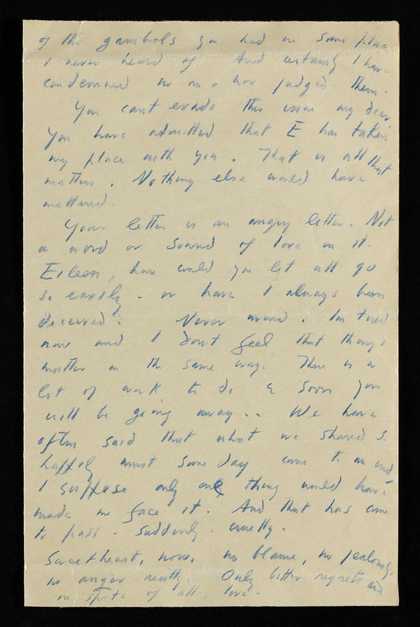 of the gambols you had in some place
I never heard of. And certainly I have
condemned no one nor judged them.
You cant evade the issue my dear.
You have admitted that E has taken
my place with you. That is all that
matters. Nothing else would have
mattered.
Your letter is an angry letter. Not
a word or sound of love in it.
Eileen, how could you let all go
so easily - or have I always been
deceived? Never mind. Im tired
now and I dont feel that things
matter in the same way. There is a
lot of work to do & soon you
will be going away.. We have
often said that what we shared so
happily must some day come to an end
I suppose only one thing would have
made me face it. And that has come
to pass. Suddenly. cruelly.
Sweetheart, no blame, no jealousy,
no anger really. Only bitter regrets and
in spite of all, love.